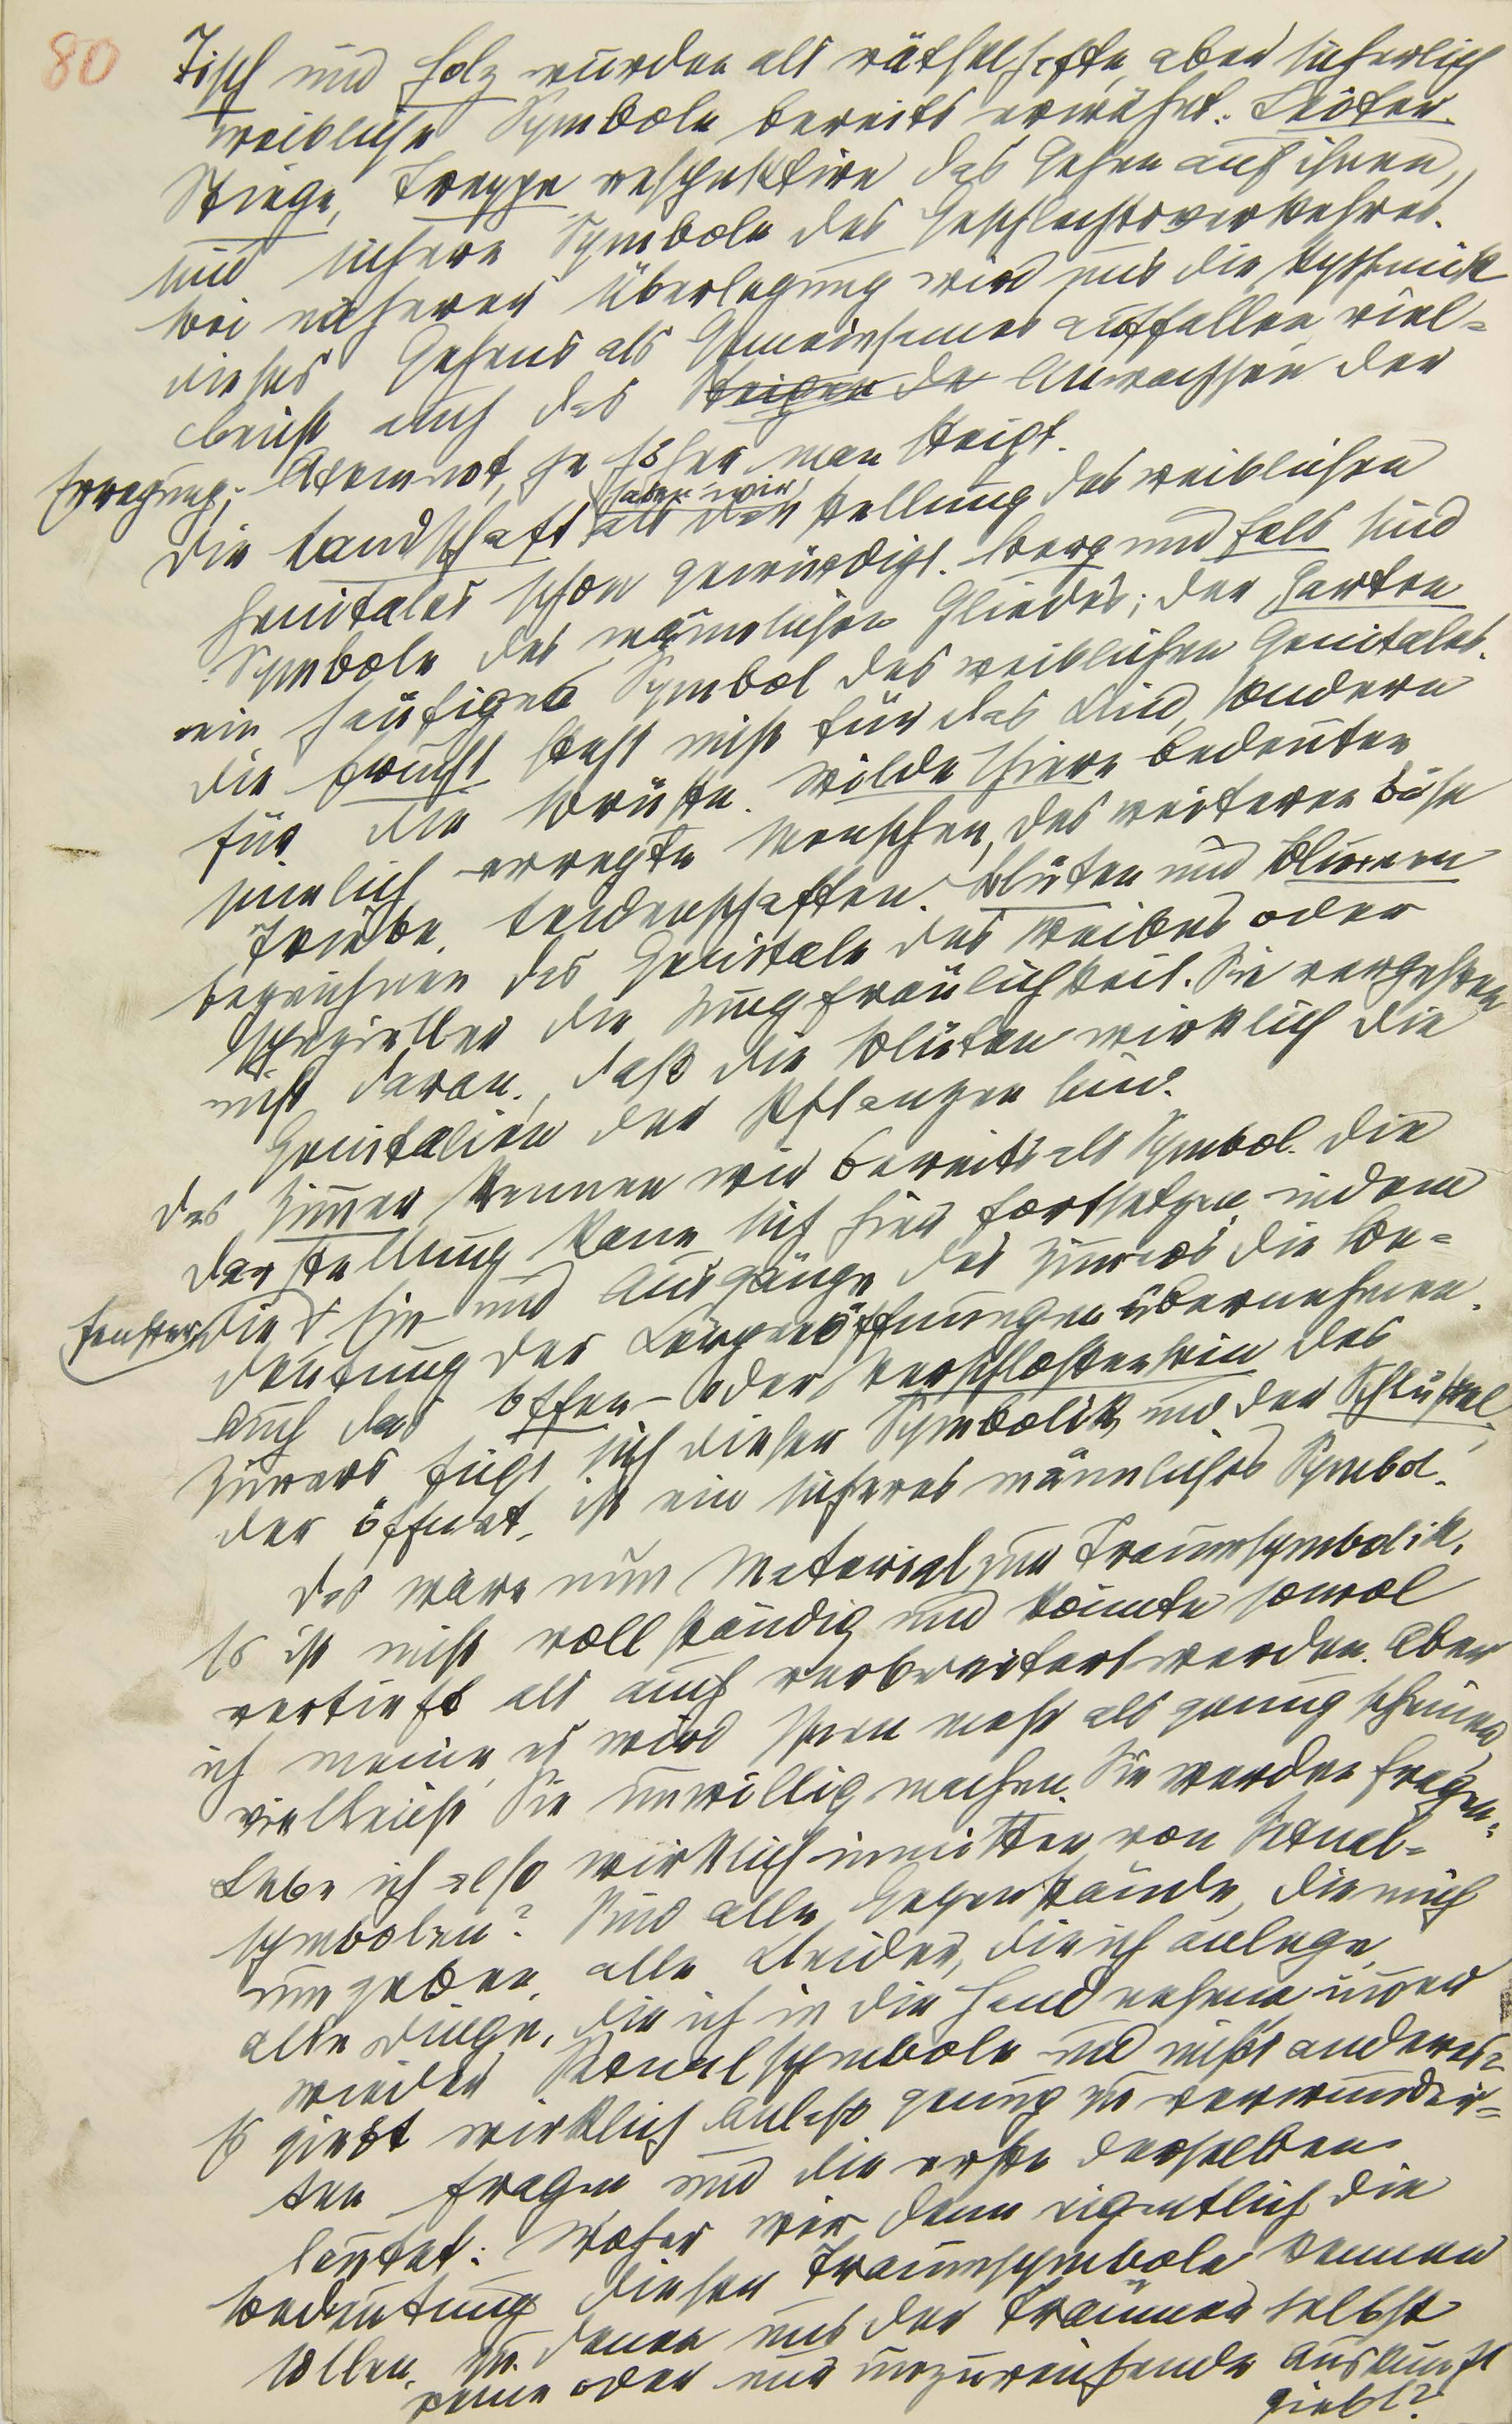 80
Tisch und Holz wurden als räthselhafte, aber sicherlich
weibliche Symbole bereits erwähnt. Leiter,
Stiege, Treppe respektive das Gehen auf ihnen,
sind sichere Symbole des Geschlechtsverkehres.
Bei näherer Überlegung wird uns die Rythmik
dieses Gehens als Gemeinsames auffallen, viel-
leicht auch das Steigen de Anwachsen der
Erregung, Atemnot, je höher man steigt.
Die Landschaft haben wir als Darstellung des weiblichen
Genitales schon gewürdigt. Berg und Fels sind
Symbole des männlichen Gliedes; der Garten
ein häufiges Symbol des weiblichen Genitales.
Die Frucht steht nicht für das Kind, sondern
für die Brüste. Wilde Thiere bedeuten
sinnlich erregte Menschen, des weiteren böse
Triebe, Leidenschaften. Blüten und Blumen
bezeichnen das Genitale des Weibes oder
spezieller die Jungfräulichkeit. Sie vergessen
nicht daran, daß die Blüten wirklich die
Genitalien der Pflanzen sind.
Das Zimmer kennen wir bereits als Symbol. Die
Darstellung kann sich hier fortsetzen, indem
die Fenster, Ein- und Ausgänge des Zimmers die Be-
deutung der Körperöffnungen übernehmen.
Auch das Offen- oder Verschlossensein des
Zimmers fügt sich dieser Symbolik und der Schlüssel,
der öffnet, ist ein sicheres männliches Symbol.
Das wäre nun Material zur Traumsymbolik.
Es ist nicht vollständig und könnte sowol
vertieft als auch verbreitert werden. Aber
ich meine, es wird Ihnen mehr als genug scheinen,
vielleicht Sie unwillig machen. Sie werden fragen:
Lebe ich also wirklich inmitten von Sexual-
symbolen? Sind alle Gegenstände, die mich
umgeben, alle Kleider, die ich anlege,
alle Dinge, die ich in die Hand nehme immer
wieder Sexualsymbole und nichts anderes?
Es giebt wirklich Anlaß genug zu verwunder-
ten Fragen und die erste derselben
lautet: Woher wir denn eigentlich die
Bedeutung dieser Traumsymbole kennen
sollen, zu denen uns der Träumer selbst
keine oder nur unzureichende Auskunft
giebt?